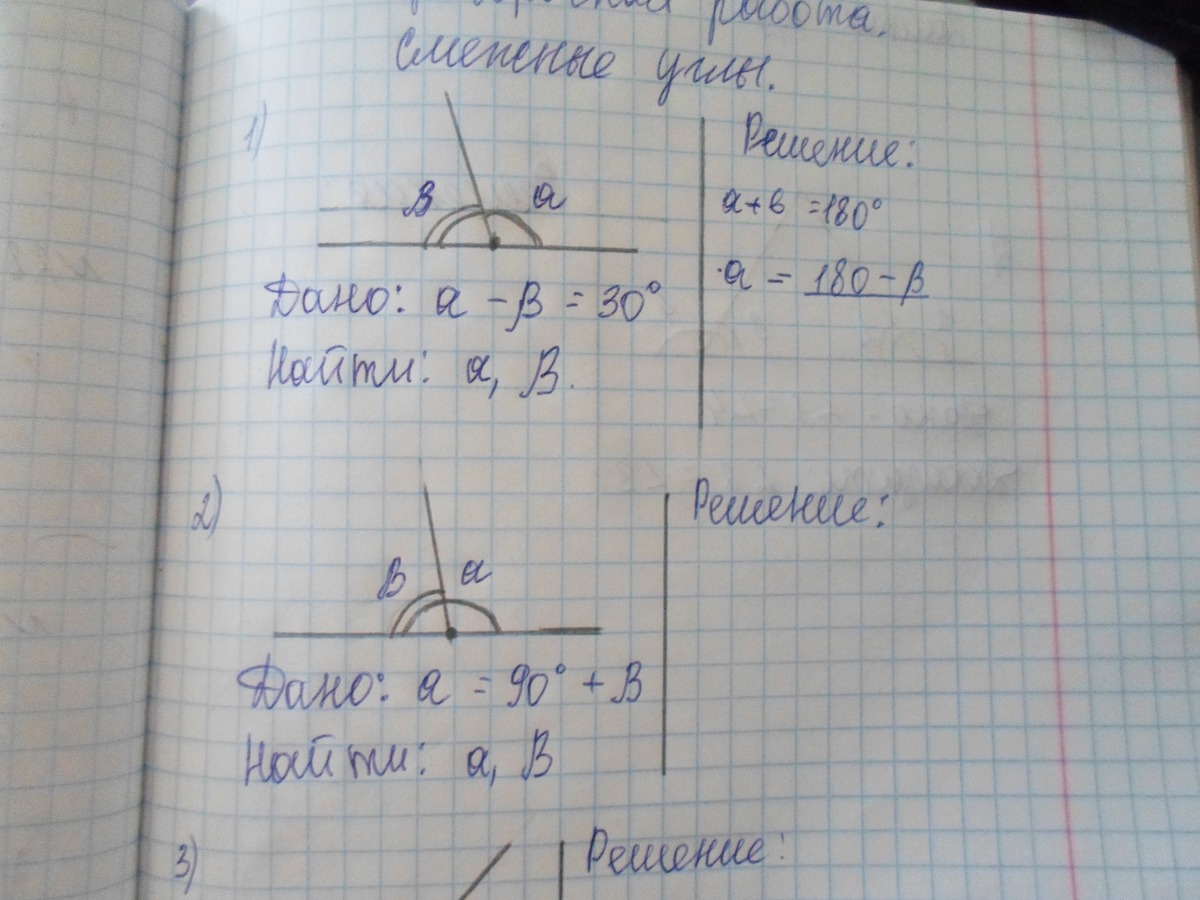 работа.
Смежные углы.
1)
β a
Дано: a - β = 30°
Найти: a, β.
Решение:
a+в =180°
a = 180-β
2)
β a
Дано: a = 90° + β
Найти: a, β
Решение:
3)
Решение: